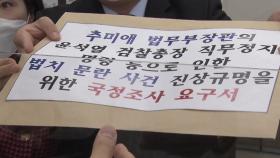 추미애 법무부장관의
윤석열 검찰총장 직무정지
명령 등으로 인한
법치 문란 사건 진상규명을
위한 국정조사 요구서